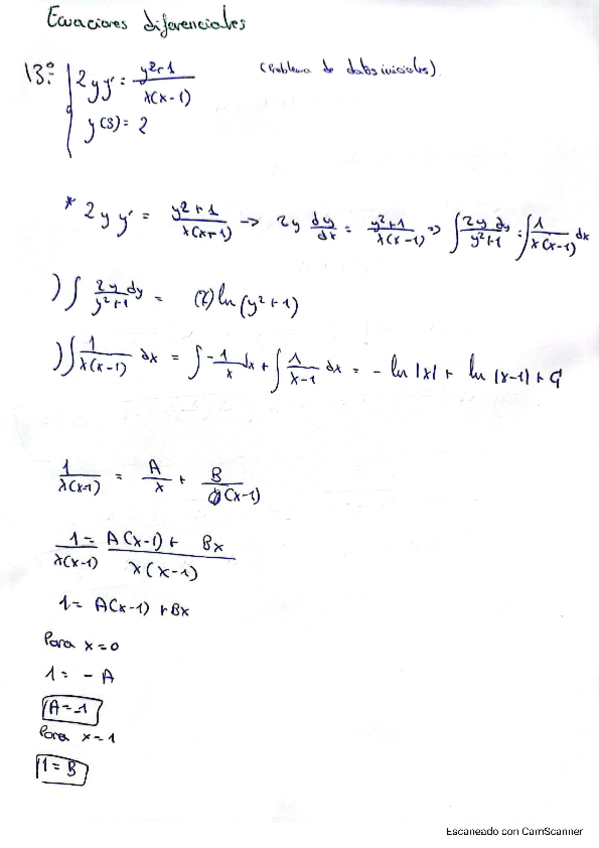 Ecuaciones diferenciales
13º: { 2yy' = (y²+1)/(x(x-1)) (Problema de datos iniciales)
y(3) = 2
* 2yy' = (y²+1)/(x(x+1)) → 2y dy/dx = (y²+1)/(x(x-1)) ⇒ ∫ 2y dy/(y²+1) = ∫ 1/(x(x-1)) dx
) ∫ 2y dy/(y²+1) = ln(y²+1)
) ∫ 1/(x(x-1)) dx = ∫ -1/x dx + ∫ 1/(x-1) dx = -ln|x| + ln|x-1| + C
1/(x(x-1)) = A/x + B/(x-1)
1/(x(x-1)) = (A(x-1) + Bx)/(x(x-1))
1 = A(x-1) + Bx
Para x=0
1 = -A
A=-1
Para x=1
1=B
Escaneado con CamScanner